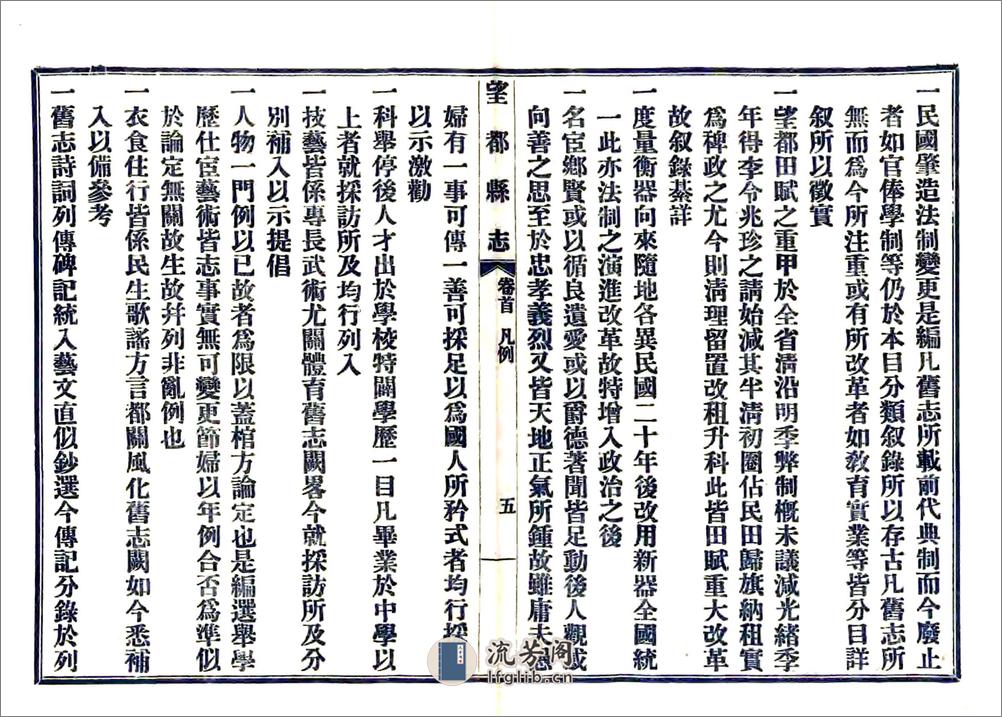 一民國肇造法制變更是編凡舊志所載前代典制而今廢止
者如官俸學制等仍於本目分類叙錄所以存古凡舊志所
無而爲今所注重或有所改革者如敎育實業等皆分目詳
叙所以徵實
一望都田賦之重甲於全省淸沿明季弊制槪未議減光緒季
年得李令兆珍之請始減其半淸初圈佔民田歸旗納租實
爲稗政之尤今則淸理留置改租升科此皆田賦重大改革
故叙錄綦詳
一度量衡器向來隨地各異民國二十年後改用新器全國統
一此亦法制之演進改革故特增入政治之後
一名宦鄕賢或以循良遺愛或以爵德著聞皆足動後人觀感
向善之思至於忠孝義烈又皆天地正氣所鍾故雖庸夫愚
望都縣志
卷首 凡例
五
婦有一事可傳一善可採足以爲國人所矜式者均行採
以示激勸
一科舉停後人才出於學校特闢學歷一目凡畢業於中學以
上者就採訪所及均行列入
一技藝皆係專長武術尤關體育舊志闕畧今就採訪所及分
別補入以示提倡
一人物一門例以已故者爲限以蓋棺方論定也是編選舉學
歷仕宦藝術皆志事實無可變更節婦以年例合否爲準似
於論定無關故生故幷列非亂例也
一衣食住行皆係民生歌謠方言都關風化舊志闕如今悉補
入以備參考
一舊志詩詞列傳碑記統入藝文直似鈔選今傳記分錄於列
流芳阁
lfglib.cn